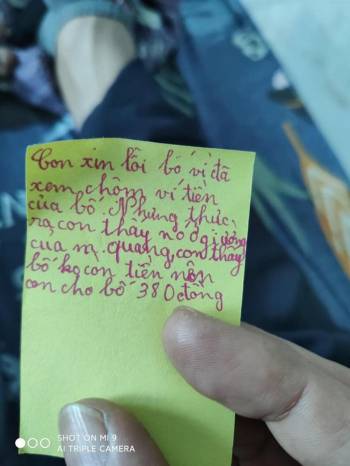 Con xin lỗi bố vì đã
xem chôm ví tiền
của bố. Nhưng thực
ra con thấy nó ở giường
của m quang, con thấy
bố ko con tiền nên
con cho bố 380 đồng
SHOT ON MI 9
AI TRIPLE CAMERA